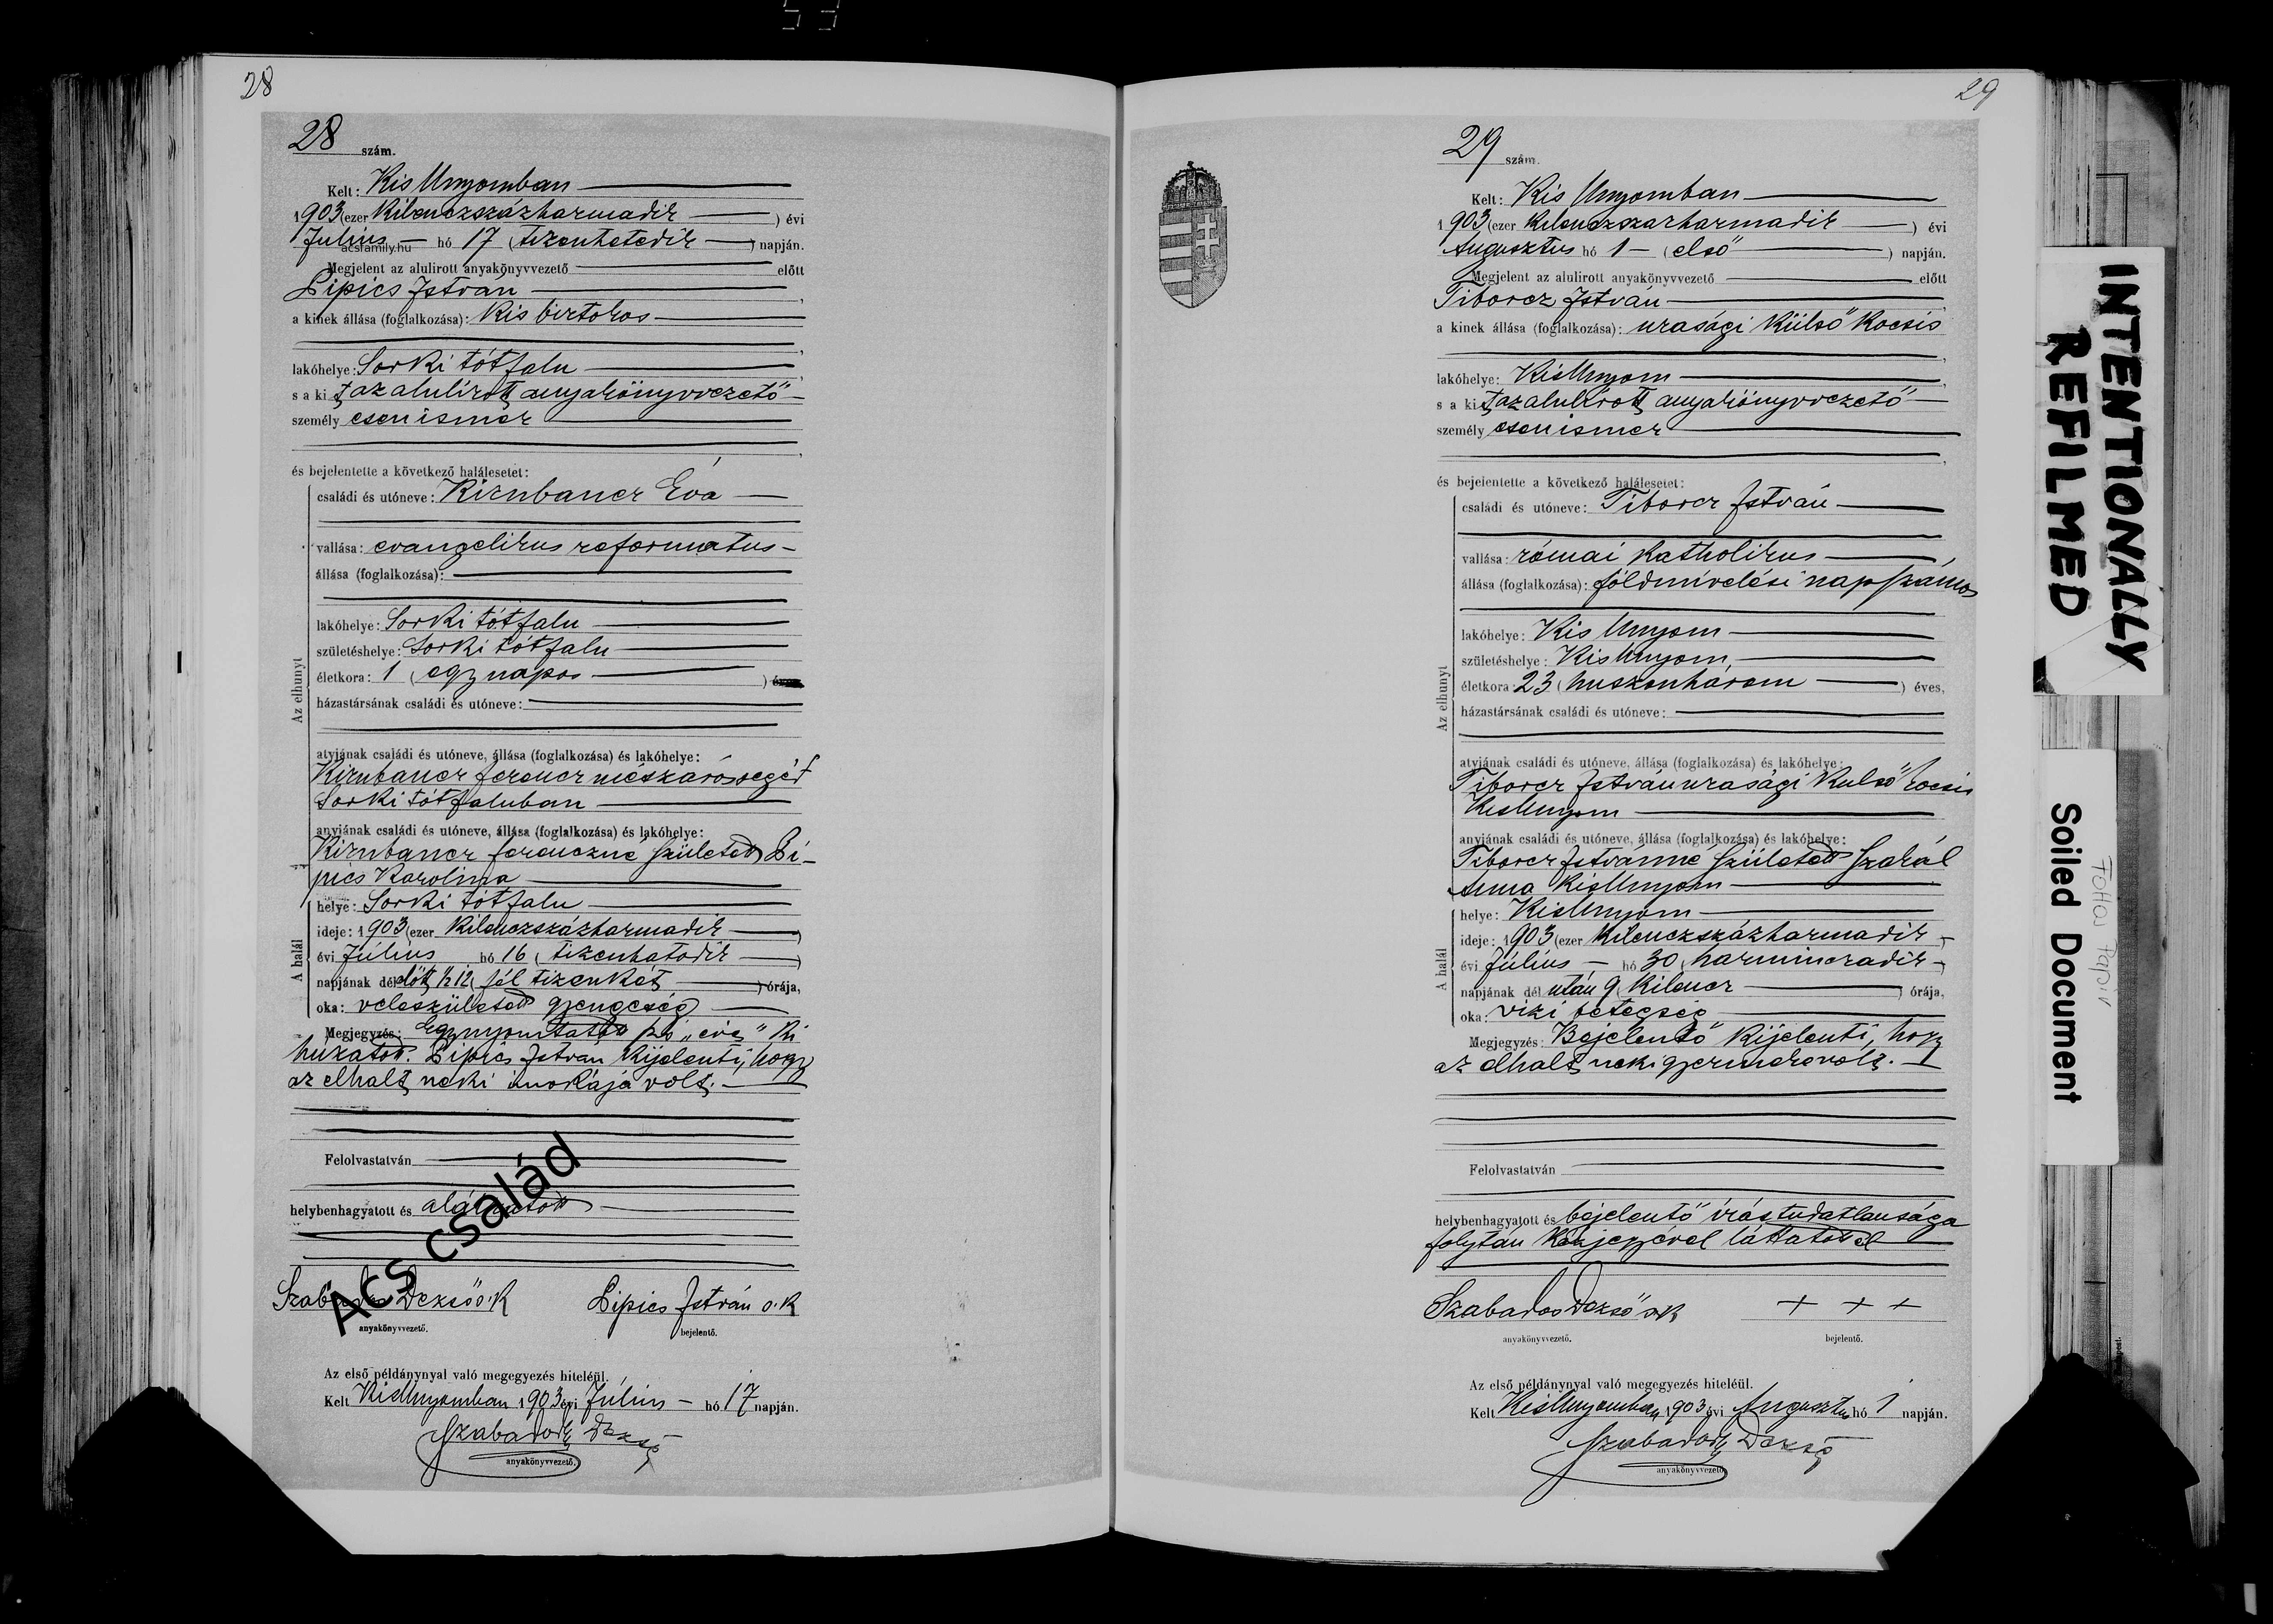 28
28 szám.
Kelt: Kis Unyomban
1903 (ezer kilenczszázharmadik ) évi
Július hó 17 (tizenhetedik ) napján.
acsfamily.hu
Megjelent az alulirott anyakönyvvezető előtt
Lipics István
a kinek állása (foglalkozása): Kis birtokos
lakóhelye: Sorki tótfalu
s a kit az alulírott anyakönyvvezető
személyesen ismer
és bejelentette a következő halálesetet:
Az elhunyt
családi és utóneve: Kirnbauer Éva
vallása: evangelikus reformatus
állása (foglalkozása):
lakóhelye: Sorki tótfalu
születéshelye: Sorki tótfalu
életkora: 1 (egy napos )
házastársának családi és utóneve:
atyjának családi és utóneve, állása (foglalkozása) és lakóhelye:
Kirnbauer Ferencz mészárossegéd
Sorki tótfaluban
anyjának családi és utóneve, állása (foglalkozása) és lakóhelye:
Kirnbauer Ferenczné született Li-
pics Karolina
A halál
helye: Sorki tótfalu
ideje: 1903 (ezer kilenczszázharmadik )
évi Július hó 16 (tizenhatodik )
napjának délelőtt ½12 (fél tizenkét ) órája,
oka: veleszületett gyengeség
Megjegyzés: Egy nyomtatott szó „éves" ki
huzatott. Lipics István kijelenti, hogy
az elhalt neki unokája volt.
Felolvastatván
helybenhagyatott és aláiratott
Ács család
Szabados Dezső s.k Lipics István s.k
anyakönyvvezető. bejelentő.
Az első példánynyal való megegyezés hiteléül.
Kelt KisUnyomban 1903 évi Július hó 17 napján.
Szabados Dezső
anyakönyvvezető.
29
29 szám.
Kelt: Kis Unyomban
1903 (ezer kilenczszázharmadik ) évi
Augusztus hó 1 (első ) napján.
Megjelent az alulirott anyakönyvvezető előtt
Tiborcz István
a kinek állása (foglalkozása): urasági külső kocsis
lakóhelye: KisUnyom
s a kit az alulírott anyakönyvvezető
személyesen ismer
és bejelentette a következő halálesetet:
Az elhunyt
családi és utóneve: Tiborcz István
vallása: római katholikus
állása (foglalkozása): földmívelési napszámos
lakóhelye: Kis Unyom
születéshelye: KisUnyom
életkora: 23 (huszonhárom ) éves,
házastársának családi és utóneve:
atyjának családi és utóneve, állása (foglalkozása) és lakóhelye:
Tiborcz István urasági külső kocsis
KisUnyom
anyjának családi és utóneve, állása (foglalkozása) és lakóhelye:
Tiborcz Istvánné született
Anna KisUnyom
A halál
helye: KisUnyom
ideje: 1903 (ezer kilenczszázharmadik
évi Július hó 30 (harminczadik
napjának délután 9 (kilencz ) órája,
oka: vizi betegség
Megjegyzés: Bejelentő kijelenti, hogy
az elhalt neki gyermeke volt.
Felolvastatván
helybenhagyatott és bejelentő írástudatlansága
folytán kézjegyével láttatott el
Szabados Dezső s.k + + +
anyakönyvvezető. bejelentő.
Az első példánynyal való megegyezés hiteléül.
Kelt KisUnyomban 1903 évi Augusztus hó 1 napján.
Szabados Dezső
anyakönyvvezető.
INTENTIONALLY
REFILMED
Soiled Document